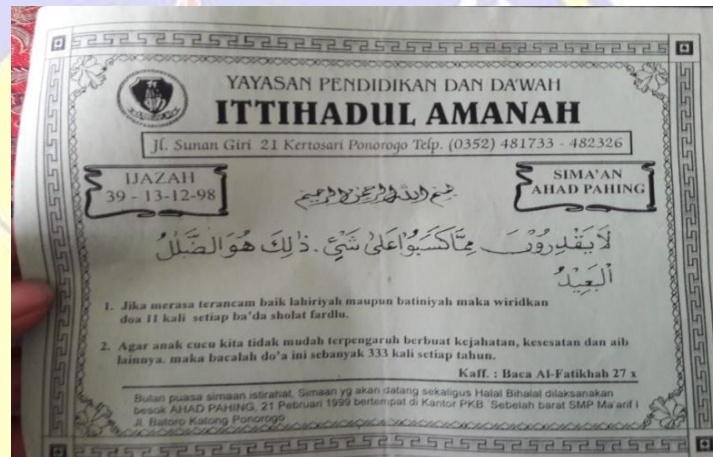 YAYASAN PENDIDIKAN DAN DA'WAH
ITTIHADUL AMANAH
Jl. Sunan Giri 21 Kertosari Ponorogo Telp. (0352) 481733 - 482326
IJAZAH
39 - 13-12-98
SIMA'AN
AHAD PAHING
بسم الله الرحمن الرحيم
لَا يَقْدِرُوْنَ مِمَّا كَسَبُوْا عَلٰى شَيْئٍ . ذٰلِكَ هُوَ الضَّلٰلُ
الْبَعِيْدُ
1. Jika merasa terancam baik lahiriyah maupun batiniyah maka wiridkan
doa 11 kali setiap ba'da sholat fardlu.
2. Agar anak cucu kita tidak mudah terpengaruh berbuat kejahatan, kesesatan dan aib
lainnya. maka bacalah do'a ini sebanyak 333 kali setiap tahun.
Kaff. : Baca Al-Fatikhah 27 x
Bulan puasa simaan istirahat. Simaan yg akan datang sekaligus Halal Bihalal dilaksanakan
besok AHAD PAHING, 21 Pebruari 1999 bertempat di Kantor PKB. Sebelah barat SMP Ma'arif I
Jl. Batoro Katong Ponorogo